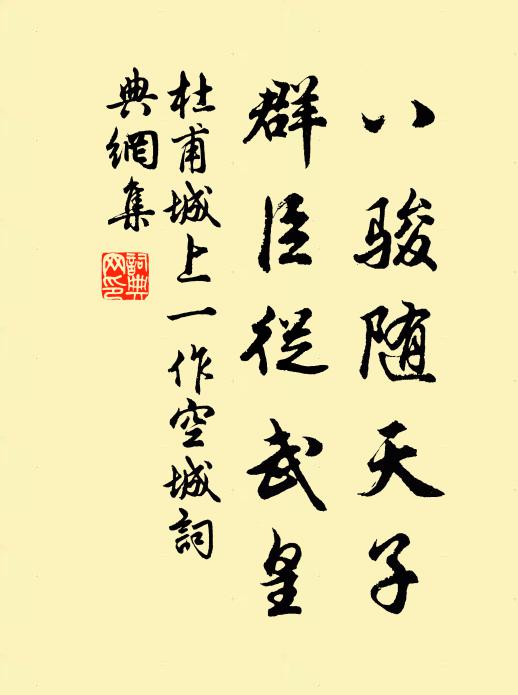 八骏随天子
群臣從武皇
杜甫城上一作空城詞
典網集
詞典网印